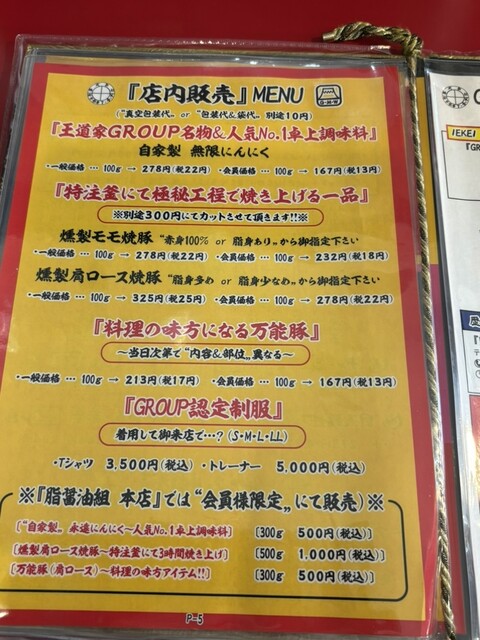 『店内販売』MENU
G・M・W
("真空包装代„ or "包装代&袋代„ 別途10円)
『王道家GROUP名物&人気No.1卓上調味料』
自家製 無限にんにく
・一般価格 … 100g → 278円(税22円) ・会員価格 … 100g → 167円(税13円)
『特注釜にて極秘工程で焼き上げる一品』
※別途300円にてカットさせて頂きます!!※
燻製モモ焼豚 "赤身100% or 脂身あり„から御指定下さい
・一般価格 … 100g → 278円(税22円) ・会員価格 … 100g → 232円(税18円)
燻製肩ロース焼豚 "脂身多め or 脂身少なめ„から御指定下さい
・一般価格 … 100g → 325円(税25円) ・会員価格 … 100g → 278円(税22円)
『料理の味方になる万能豚』
～当日次第で"内容&部位„異なる～
・一般価格 … 100g → 213円(税17円) ・会員価格 … 100g → 167円(税13円)
『GROUP認定制服』
着用して御来店で…?(S・M・L・LL)
・Tシャツ 3,500円(税込) ・トレーナー 5,000円(税込)
※『脂醤油組 本店』では"会員様限定„にて販売)※
["自家製„ 永遠にんにく～人気No.1卓上調味料] [300g 500円(税込)]
[燻製肩ロース焼豚～特注釜にて3時間焼き上げ] [500g 1,000円(税込)]
[万能豚(肩ロース)～料理の味方アイテム!!] [300g 500円(税込)]
P-5
IEKEI